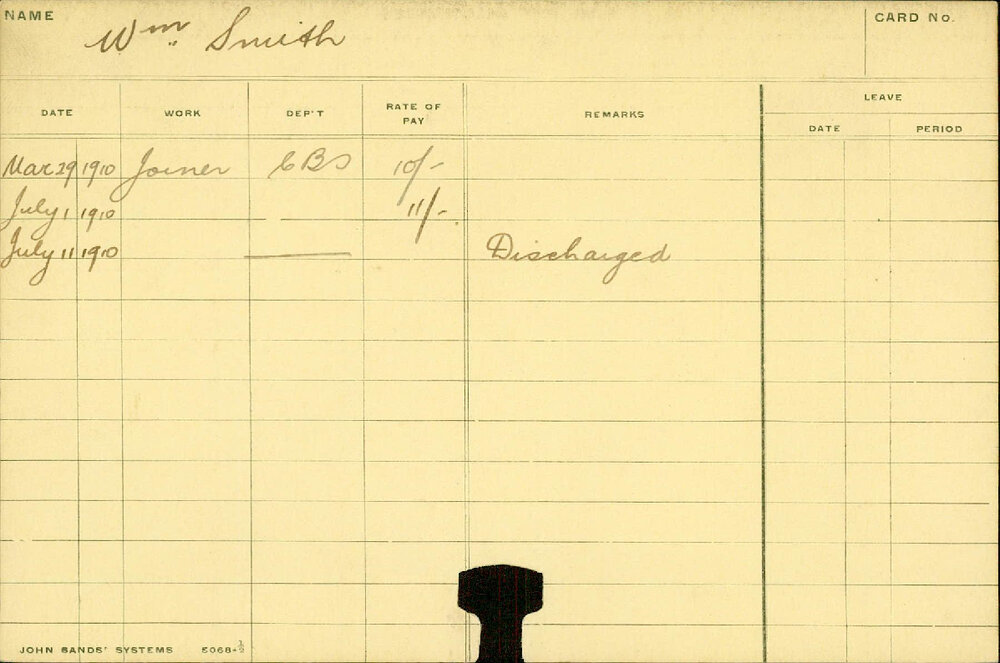 NAME Wm Smith CARD No.
DATE WORK DEP'T RATE OF PAY REMARKS LEAVE
DATE PERIOD
Mar 29 1910 Joiner CBS 10/-
July 1 1910 11/-
July 11 1910 Discharged
JOHN SANDS' SYSTEMS 5068-½